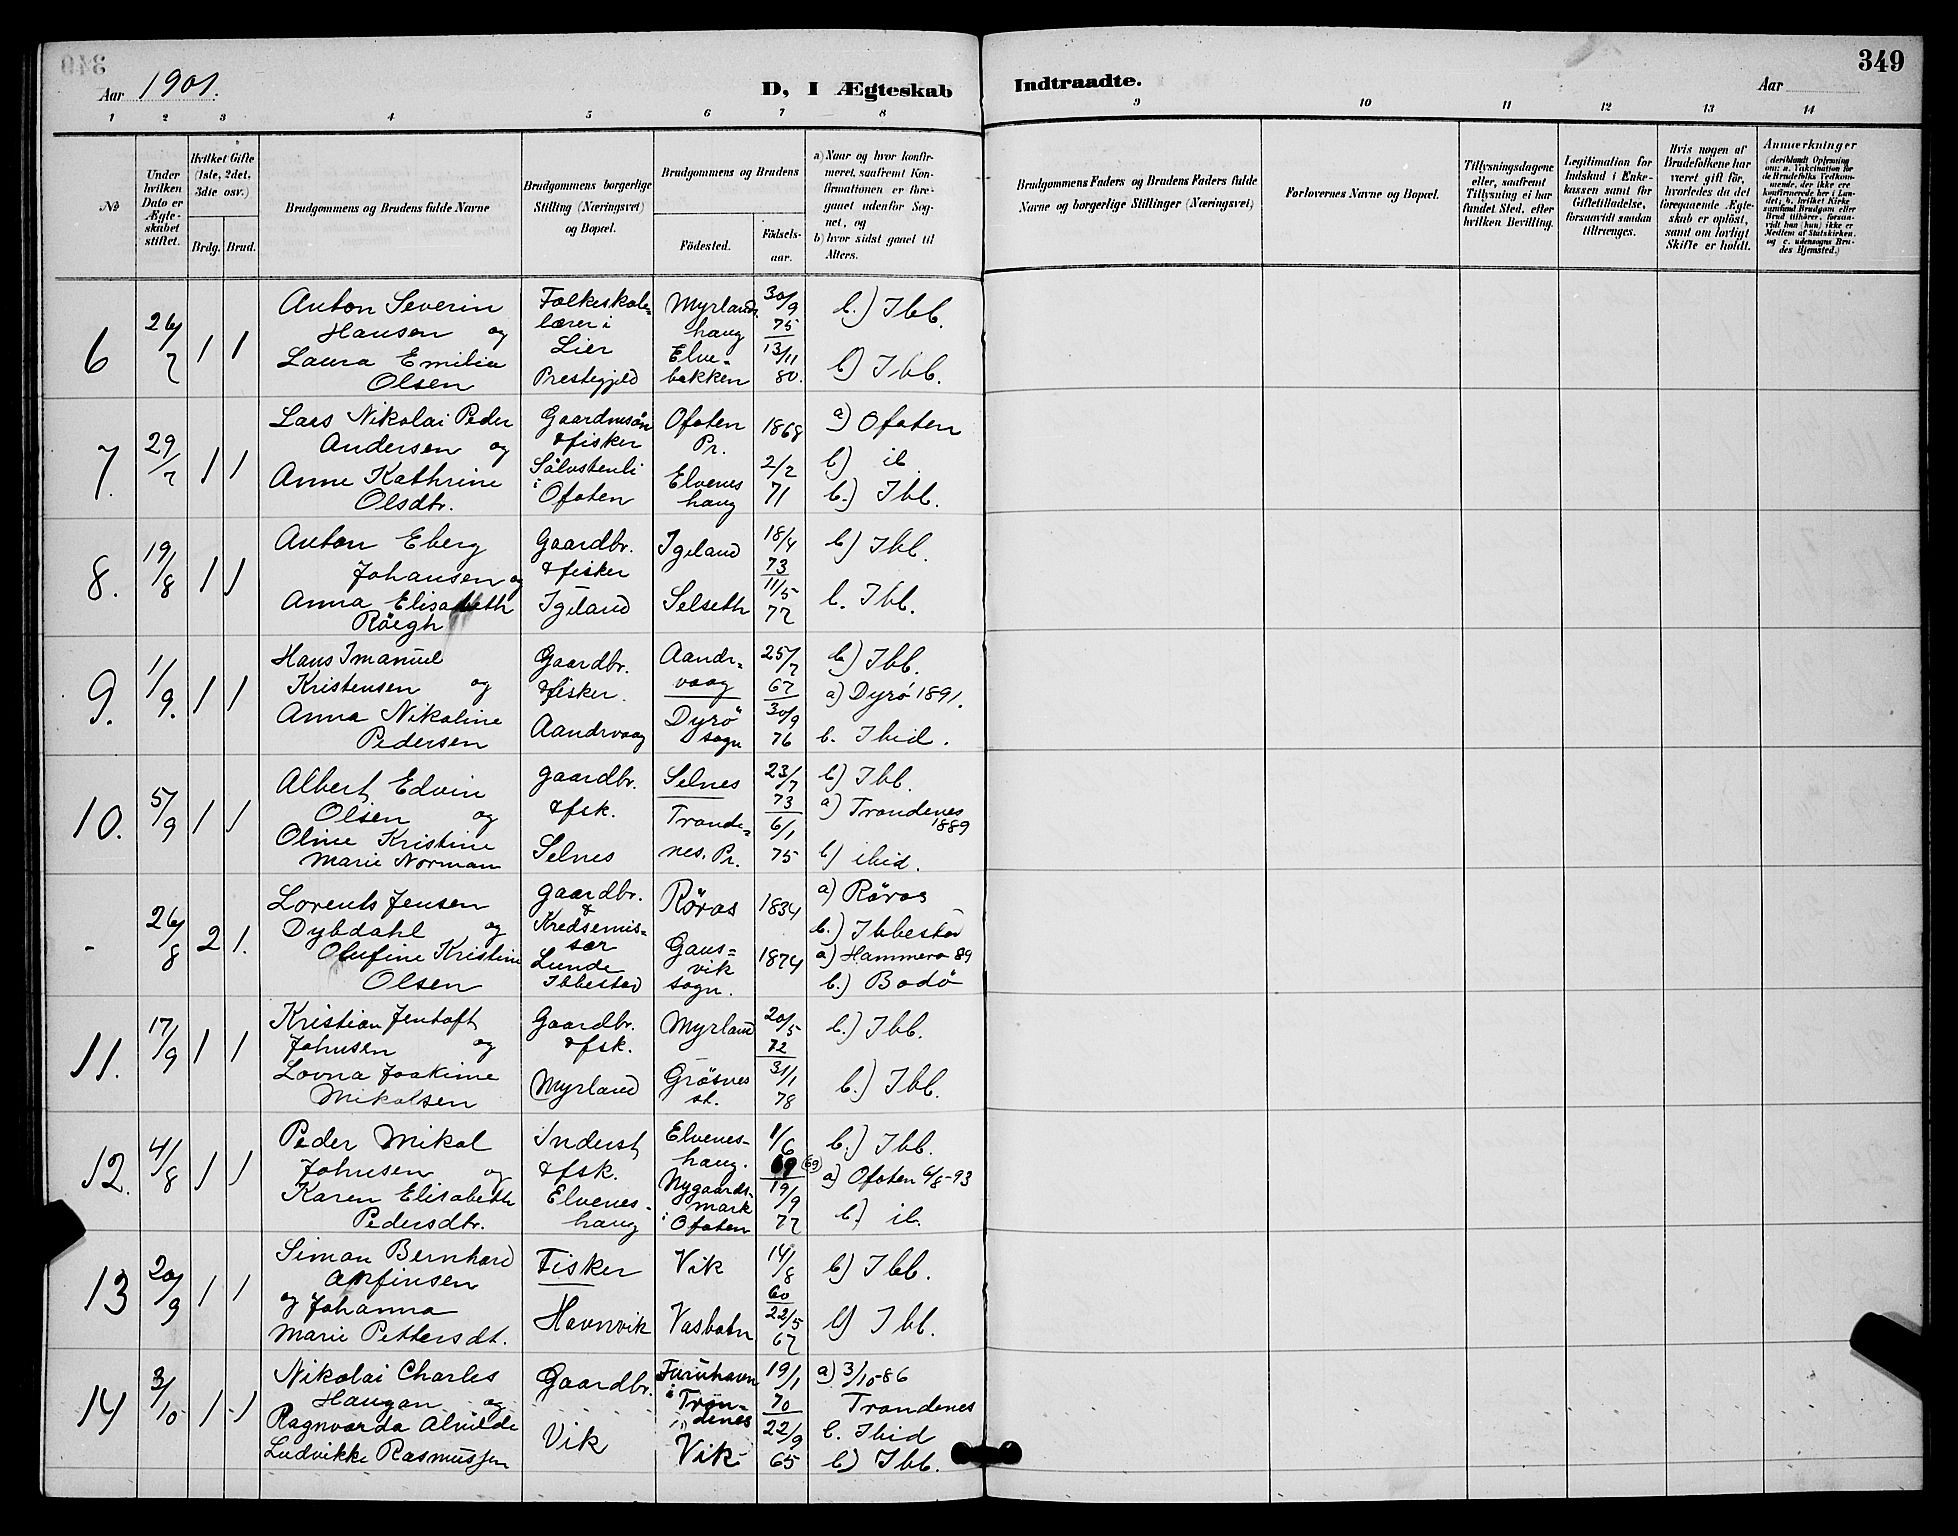 349
Aar 1901.
D, I Ægteskab Indtraadte.
Aar
1 2 3 4 5 6 7 8 9 10 11 12 13 14
№
Under hvilken Dato er Ægte-skabet stiftet.
Hvilket Gifte (1ste, 2det, 3die osv.)
Brdg. Brud.
Brudgommens og Brudens fulde Navne
Brudgommens borgerlige Stilling (Næringsvei) og Bopæl.
Brudgommens og Brudens
Fødested.
Fødsels-aar.
a) Naar og hvor konfir-meret, saafremt Kon-firmationen er fore-gaaet udenfor Sog-net, og
b) hvor sidst gaaet til Alters.
Brudgommens Faders og Brudens Faders fulde Navne og borgerlige Stillinger (Næringsvei)
Forlovernes Navne og Bopæl.
Tillysningsdagene eller, saafremt Tillysning ei har fundet Sted, efter hvilken Bevilling.
Legitimation for Indskud i Enke-kassen samt for Giftetilladelse, forsaavidt saadan tiltrænges.
Hvis nogen af Brudefolkene har været gift før, hvorledes da det foregaaende Ægte-skab er opløst, samt om lovligt Skifte er holdt.
Anmerkninger
(deriblandt Oplysning om: a. Vakcination for de Brudefolks Vedkom-mende, der ikke ere konfirmerede her i Lan-det; b. hvilket Kirke-samfund Brudgom eller Brud tilhører, forsaa-vidt han (hun) ikke er Medlem af Statskirken. og c. udensogns Bru-des Hjemsted.)
6 26/7 1 1
Anton Severin
Hansen og
Laura Emilie
Olsen
Folkeskole-
lærer i
Lier
Prestegjeld
Myrlands
haug
Elve-
bakken
30/9
75
13/11
80.
b.) Ibb.
b) Ibb.
7. 29/7 1 1
Lars Nikolai Peder
Andersen og
Anne Kathrine
Olsdtr.
Gaardmsön
& fisker
Sölvstenli
i Ofoten
Ofoten
Pr.
Elvenes
haug
1868
2/2
71
a) Ofoten
b) ib.
b.) Ibb.
8. 19/8 1 1
Anton Eberg
Johansen og
Anna Elisabeth
Röegh
Gaardbr.
& fisker
Igeland
Igeland
Selseth
18/4
73
11/5
77
b) Ibb.
b. Ibb.
9. 1/9. 1 1
Hans Imanuel
Kristensen og
Anna Nikoline
Pedersen
Gaardbr.
& fisker.
Aandrvaag
Aandr-
vaag
Dyrö
sogn
25/7
67
30/9
76
b) Ibb.
a) Dyrö 1891.
b. Ibid.
10. 5/9 1 1
Albert Edvin
Olsen og
Oline Kristine
Marie Norman
gaardbr.
& fsk.
Selnes
Selnes
Tronde-
nes. Pr.
23/7
73
6/1
75
b) Ibb.
a) Trondenes
1889
b) ibid.
- 26/8 2 1.
Lorents Jensen
Dybdahl og
Olufine Kristine
Olsen
gaardbr.
&
Kredsemis-
sær
Lunde
Ibbestad
Röros
Gaus-
vik
sogn.
1834
1874
a) Röros
b.) Ibbestad
a) Hammerø 89
b.) Bodö
11. 17/9 1 1
Kristian Jentoft
Johnsen og
Lovna Joakime
Mikalsen
Gaardbr.
& fsk.
Myrland
Myrland
Gräsnes
st.
20/5
72
31/1
78
b.) Ibb.
b.) Ibb.
12. 4/8 1 1
Peder Mikal
Johnsen og
Karen Elisabeth
Pedersdtr.
Inderst
& fsk.
Elvenes-
haug
Elvenes-
haug.
Nygaards-
mark
i Ofoten
1/6
69 (69)
19/9
77
b.) Ibb.
a) Ofoten 6/8-93
b.) ib.
13 20/9 1 1
Simon Bernhard
Arfinsen
og Johanna
Marie Pettersdt.
Fisker
Havnvik
Vik
Vasbotn
14/8
60
22/5
67
b) Ibb.
b) Ibb.
14 3/10 1 1
Nikolai Charles
Haugan og
Ragnvarda Alvilde
Ludvikke Rasmussen
Gaardbr.
Vik
Furuhavn
i Tron-
denes
Vik
19/1
70
22/9
65
a) 3/10-86
Trondenes
b. Ibid
b) Ibb.